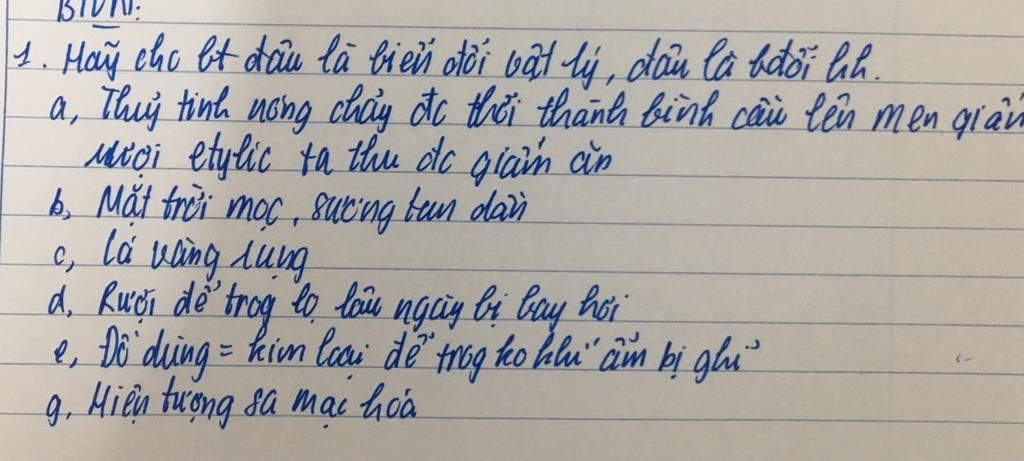 BTVN:
1. Hãy cho bt đâu là biến đổi vật lý, đâu là bđổi hh.
a, Thuỷ tinh nóng chảy đc thổi thành bình cầu lên men giấm
rượi etylic ta thu đc giấm ăn
b, Mặt trời mọc, sương tan dần
c, lá vàng rụng
d, Rượi để trog lọ lâu ngày bị bay hơi
e, Đồ dùng = kim loại để trog ko khí ẩm bị ghỉ
g, Hiện tượng sa mạc hoá